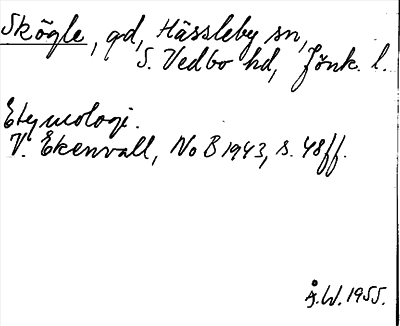 Skögle, gd, Hässleby sn,
S. Vedbo hd, Jönk. l.
Etymologi.
V. Ekenvall, NoB 1943, s. 48ff.
Å.W. 1955.